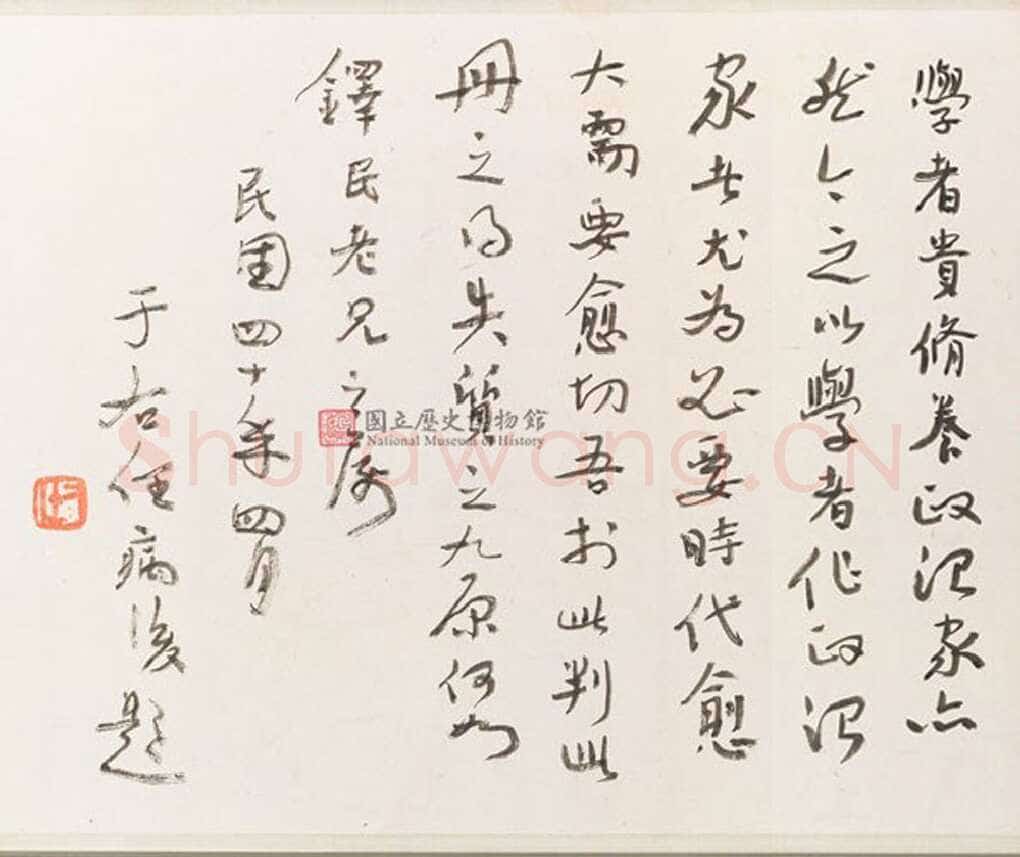 學者貴脩養政治家亦
然今之以學者作政治
家者尤為必要時代愈
大需要愈切吾於此判此
冊之得失質之九原何如
鐸民老兄之屬
民國四十年四月
于右任病後題
國立歷史博物館
National Museum of History
Shufawang.CN